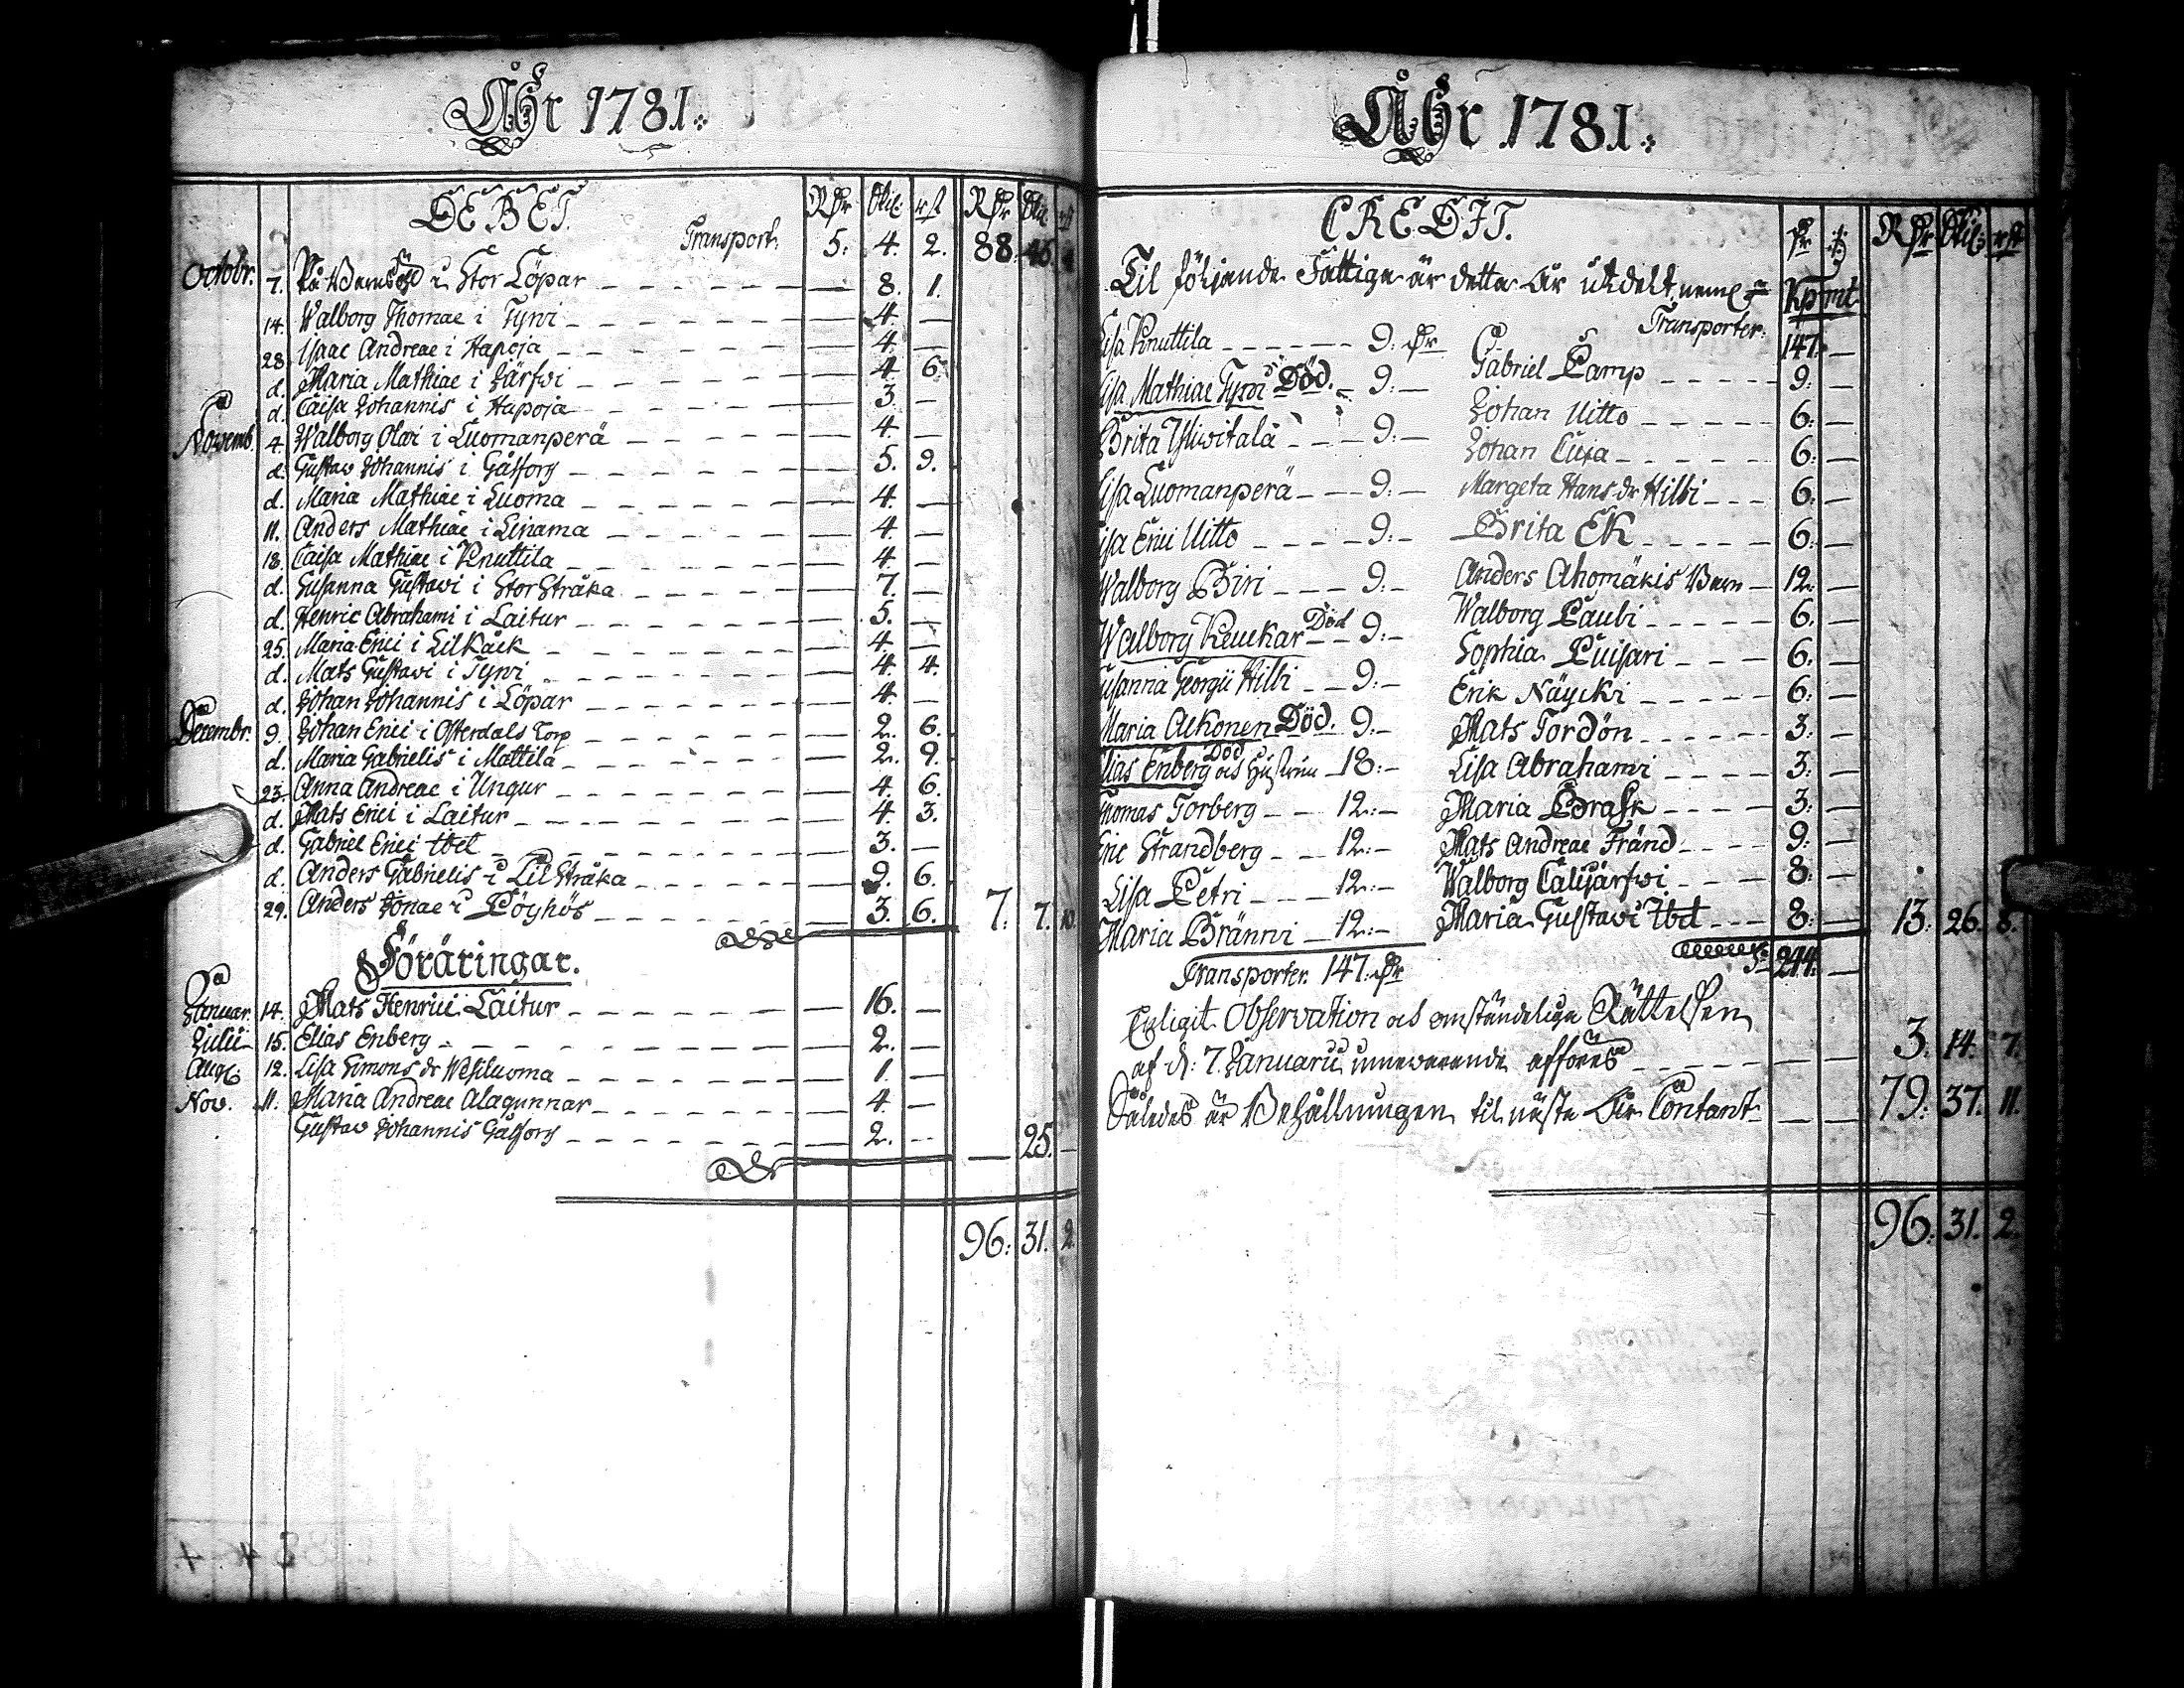 Åhr 1781.
DEBET. Rdr Skil: rst Rdr Skil rst
Transport: 5. 4. 2. 88. 46. 4
Octobr. 7. På Barnsöhl i Stor Löpar 8. 1.
14. Walborg Thomae i Tyrvi 4. —
28. Isaac Andreae i Hapoja 4. —
d. Maria Mathiae i Järfvi 4. 6.
d. Caisa Johannis i Hapoja 3. —
Novemb. 4. Walborg Olai i Luomanperä 4. —
d. Gustav Johannis i Gåssorg 5. 9.
d. Maria Mathiae i Luoma 4. —
11. Anders Mathiae i Linama 4. —
18. Caisa Mathiae i Knuttila 4. —
d. Susanna Gustavi i Stor Stråka 7. —
d. Henric Abrahami i Laitur 5. —
25. Maria Erici i Lil Kåck 4. —
d. Mats Gustavi i Tyrvi 4. 4.
d. Johan Johannis i Löpar 4. —
Decembr. 9. Johan Erici i Österdals Torp 2. 6.
d. Maria Gabrielis i Mattila 2. 9.
23. Anna Andreae i Ungur 4. 6.
d. Mats Erici i Laitur 4. 3.
d. Gabriel Erici ibd 3. —
d. Anders Gabrielis i Lil Stråka 9. 6.
29. Anders Jonae i Pöyhös 3. 6. 7. 7. 10
Föräringar.
Januar. 14. Mats Henrici Laitur 16. —
Julii 15. Elias Enberg 2. —
Aug: 12. Lisa Simons dr Wesiluoma 1. —
Nov. 11. Maria Andreae Alagunnar 4. —
Gustav Johannis Gåssorg 2. — — 25. —
96. 31. 2
Åhr 1781.
CREDIT. Rdr Skil: rst
Til följande Fattiga är detta år utdelt neml: Kp mt
Transporter: 147. —
Lisa Knuttila 9. Dr Gabriel Camp 9. —
Lisa Mathiae Tyrvi Död. 9: — Johan Uitto 6. —
Brita Yliwitala 9: — Johan Cuja 6. —
Lisa Luomanperä 9: — Margeta Hans dr Hilbi 6. —
Lisa Erici Uitto 9: — Brita Ek 6. —
Walborg Biri 9: — Anders Ahomäkis Barn 12. —
Walborg Keuckar Död 9: — Walborg Paubi 6. —
Susanna Georgii Hilbi 9: — Sophia Puisari 6. —
Maria Alkonen Död. 9: — Erik Näycki 6. —
Elias Enberg Död och Hustrun 18: — Mats Tordön 3. —
Thomas Torberg 12: — Lisa Abrahami 3. —
Eric Strandberg 12: — Maria Brask 3. —
Lisa Petri 12: — Mats Andreae Fränd 9. —
Maria Bränni 12: — Walborg Calijärfvi 8. —
Transporter. 147. Dr Maria Gustavi ibd 8. — 13. 26. 8.
S: 244. —
Enligit Observation och omständelige Rättelsen
af d: 7. Januarii innevarande afföres 3. 14. 7.
Således är Behållningen til näste År Contant 79. 37. 11.
96. 31. 2